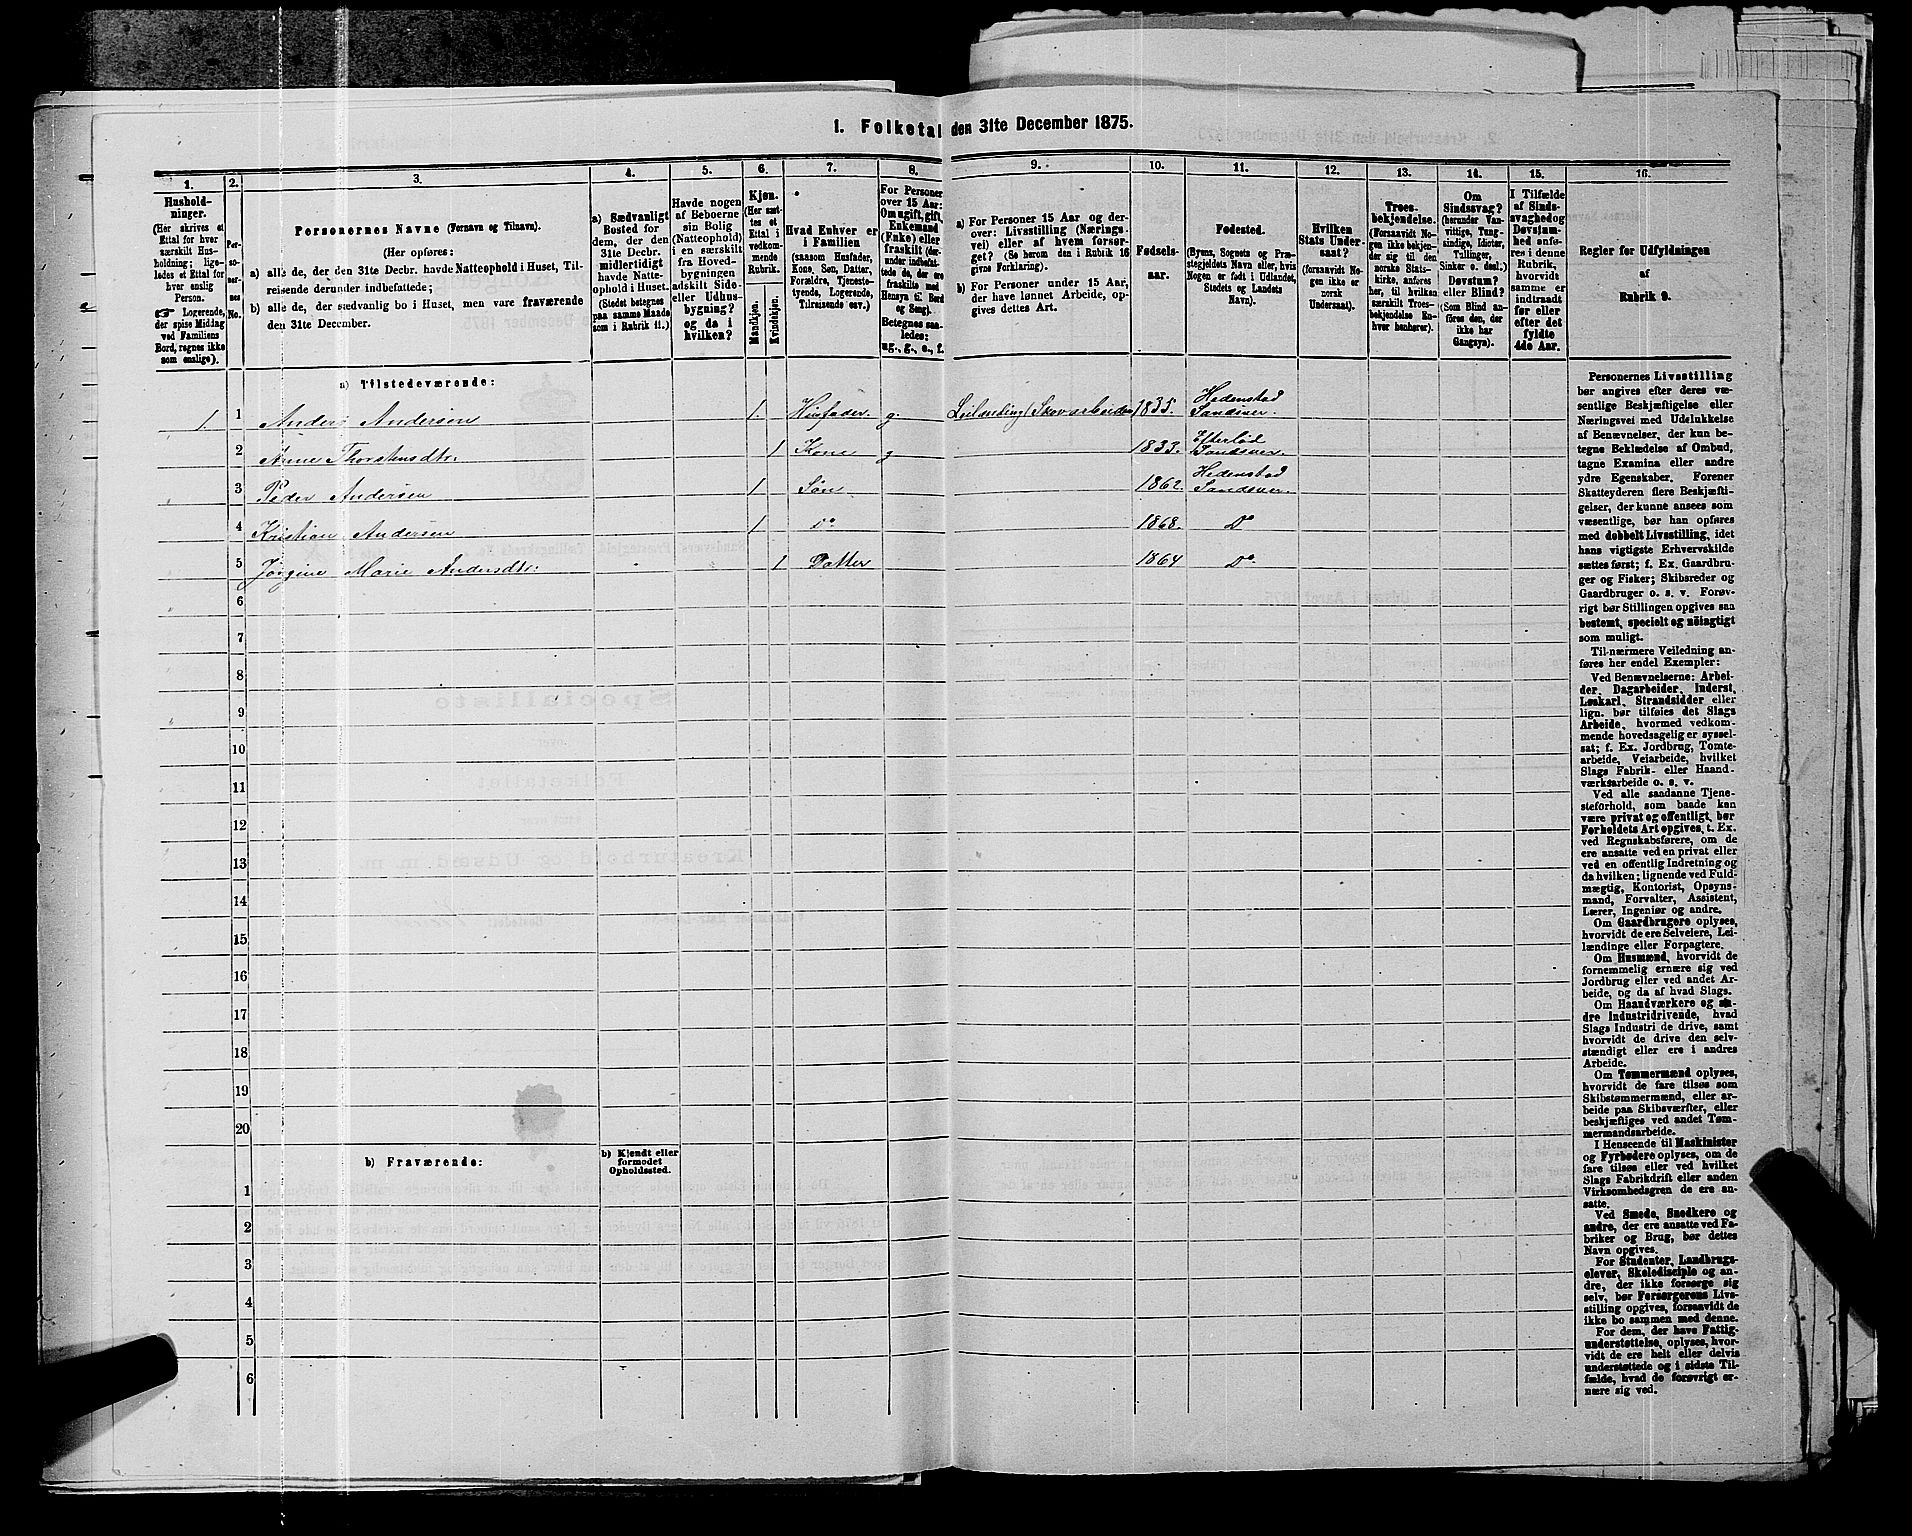 1. Folketal den 31te December 1875.
1. 2. 3. 4. 5. 6. 7. 8. 9. 10. 11. 12. 13. 14. 15. 16.
Hushold-
ninger.
(Her skrives et
Ettal for hver
særskilt Hus-
holdning; lige-
ledes et Ettal for
hver enslig
Person.
☞ Logerende,
der spise Middag
ved Familiens
Bord, regnes ikke
som enslige).
Per-
so-
ner-
nes
No.
Personernes Navne (Fornavn og Tilnavn).
(Her opføres:
a) alle de, der den 31te Decbr. havde Natteophold i Huset, Til-
reisende derunder indbefattede;
b) alle de, der sædvanlig bo i Huset, men vare fraværende
den 31te December.
a) Sædvanligt
Bosted for
dem, der den
31te Decbr.
midlertidigt
havde Natte-
ophold i Huset.
(Stedet betegnes
paa samme Maade
som i Rubrik 11.)
Havde nogen
af Beboerne
sin Bolig
(Natteophold)
i en særskilt
fra Hoved-
bygningen
adskilt Side-
eller Udhus-
bygning?
og da i
hvilken?
Kjøn.
(Her sæt-
tes et
Ettal i
vedkom-
mende
Rubrik.
Mandkjøn.
Kvindekjøn.
Hvad Enhver er
i Familien
(saasom Husfader,
Kone, Søn, Datter,
Forældre, Tjeneste-
tyende, Logerende,
Tilreisende osv.)
For Personer
over 15 Aar:
Om ugift, gift,
Enkemand
(Enke) eller
fraskilt (der-
under indbefat-
tede de, der ere
fraskilte med
Hensyn til Bord
og Seng).
Betegnes saa-
ledes:
ug., g., e., f.
a) For Personer 15 Aar og der-
over: Livsstilling (Nærings-
vei) eller af hvem forsør-
get? (Se herom den i Rubrik 16
givne Forklaring).
b) For Personer under 15 Aar,
der have lønnet Arbeide, op-
gives dettes Art.
Fødsels-
aar.
Fødested.
(Byens, Sognets og Præ-
stegjeldets Navn eller, hvis
Nogen er født i Udlandet,
Stedets og Landets
Navn).
Hvilken
Stats Under-
saat?
(forsaavidt No-
gen ikke er
norsk
Undersaat).
Troes-
bekjendelse.
(Forsaavidt No-
gen ikke bekjen-
der sig til den
norske Stats-
kirke, anføres
her, til hvilken
særskilt Troes-
bekjendelse En-
hver henhører).
Om
Sindssvag?
(herunder Van-
vittige, Tung-
sindige, Idioter,
Tullinger,
Sinker o. desl.)
Døvstum?
eller Blind?
(Som Blind an-
føres den, der
ikke har
Gangsyn).
I Tilfælde
af Sinds-
svaghed og
Døvstum-
hed anfø-
res i denne
Rubrik,
hvorvidt
samme er
indtraadt
før eller
efter det
fyldte
4de Aar.
Regler for Udfyldningen
af
Rubrik 9.
a) Tilstedeværende:
1 1 Anders Andersen 1. Husfader. g. Leilending Skovarbeider 1835. Hedenstad Sandsver.
2 Anne Thorstensdtr. 1 Kone g 1833. Eftelød Sandsver.
3 Peder Andersen 1 Søn. 1862. Hedenstad Sandsver.
4 Kristian Andersen 1 Do 1868. Do
5 Jørgine Marie Andersdtr. 1 Datter 1864 Do.
6
7
8
9
10
11
12
13
14
15
16
17
18
19
20
b) Fraværende:
b) Kjendt eller
formodet
Opholdssted.
1
2
3
4
5
6
Personernes Livsstilling
bør angives efter deres væ-
sentlige Beskjæftigelse eller
Næringsvei med Udelukkelse
af Benævnelser, der kun be-
tegne Beklædelse af Ombud,
tagne Examina eller andre
ydre Egenskaber. Forener
Skatteyderen flere Beskjæfti-
gelser, der kunne ansees som
væsentlige, bør han opføres
med dobbelt Livsstilling, idet
hans vigtigste Erhvervskilde
sættes først; f. Ex. Gaardbru-
ger og Fisker; Skibsreder og
Gaardbruger o. s. v. Forøv-
rigt bør Stillingen opgives saa
bestemt, specielt og nøiagtigt
som muligt.
Til nærmere Veiledning an-
føres her endel Exempler:
Ved Benævnelserne: Arbei-
der, Dagarbeider, Inderst,
Løskarl, Strandsidder eller
lign. bør tilføies det Slags
Arbeide, hvormed vedkom-
mende hovedsagelig er syssel-
sat; f. Ex. Jordbrug, Tomte-
arbeide, Veiarbeide, hvilket
Slags Fabrik- eller Haand-
værksarbeide o. s. v.
Ved alle saadanne Tjene-
steforhold, som baade kan
være privat og offentligt, bør
Forholdets Art opgives, t. Ex.
ved Regnskabsførere, om de
ere ansatte ved en privat eller
ved en offentlig Indretning og
da hvilken; lignende ved Fuld-
mægtig, Kontorist, Opsyns-
mand, Forvalter, Assistent,
Lærer, Ingeniør og andre.
Om Gaardbrugere oplyses,
hvorvidt de ere Selveiere, Lei-
lændinge eller Forpagtere.
Om Husmænd, hvorvidt de
fornemmelig ernære sig ved
Jordbrug eller ved andet Ar-
beide, og da af hvad Slags.
Om Haandværkere og an-
dre Industridrivende, hvad
Slags Industri de drive, samt
hvorvidt de drive den selv-
stændigt eller ere i andres
Arbeide.
Om Tømmermænd oplyses,
hvorvidt de fare tilsøs som
Skibstømmermænd, eller ar-
beide paa Skibsværfter, eller
beskjæftiges ved andet Tøm-
mermandsarbeide.
I Henseende til Maskinister
og Fyrbødere oplyses, om de
fare tilsøs eller ved hvilket
Slags Fabrikdrift eller anden
Virksomhedsgren de ere an-
satte.
Ved Smede, Snedkere og
andre, der ere ansatte ved Fa-
briker og Brug, bør dettes
Navn opgives.
For Studenter, Landbrugs-
elever, Skoledisciple og an-
dre, der ikke forsørge sig
selv, bør Forsørgerens Livs-
stilling opgives, forsaavidt de
ikke bo sammen med denne.
For dem, der have Fattig-
understøttelse, oplyses, hvor-
vidt de ere helt eller delvis
understøttede og i sidste Til-
fælde, hvad de forøvrigt er-
nære sig ved.